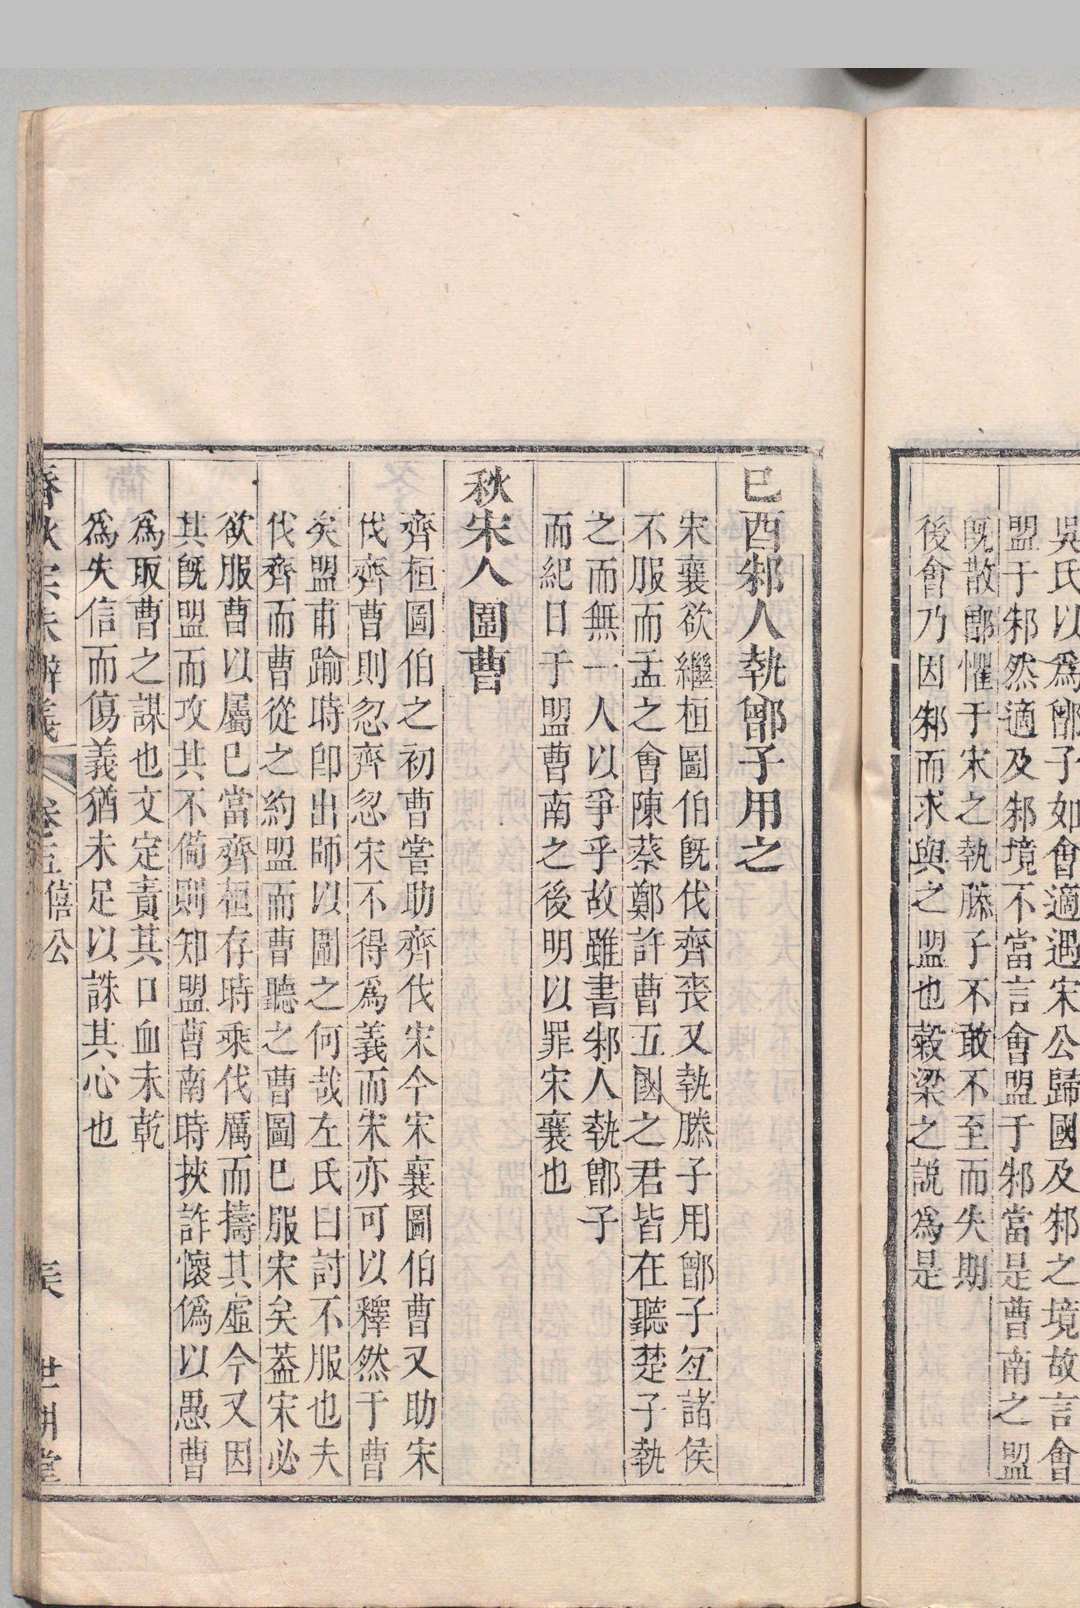 吳氏以爲鄫子如會適遇宋公歸國及邾之境故言會
盟于邾然適及邾境不當言會盟于邾當是曹南之盟
既散鄫懼于宋之執滕子不敢不至而失期
後會乃因邾而求與之盟也穀梁之說爲是
己酉邾人執鄫子用之
宋襄欲繼桓圖伯既伐齊喪又執滕子用鄫子冝諸侯
不服而盂之會陳蔡鄭許曹五國之君皆在聽楚子執
之而無一人以爭乎故雖書邾人執鄫子
而紀日于盟曹南之後明以罪宋襄也
秋宋人圍曹
齊桓圖伯之初曹嘗助齊伐宋今宋襄圖伯曹又助宋
伐齊曹則忍齊忍宋不得爲義而宋亦可以釋然于曹
矣盟甫踰時卽出師以圍之何哉左氏曰討不服也夫
伐齊而曹從之約盟而曹聽之曹圖已服宋矣葢宋必
欲服曹以屬已當齊桓存時乘伐厲而擣其虛今又因
其既盟而攻其不備則知盟曹南時挾詐懷僞以愚曹
爲取曹之謀也文定責其口血未乾
爲失信而傷義猶未足以誅其心也
春秋宗朱辨義 卷五僖公